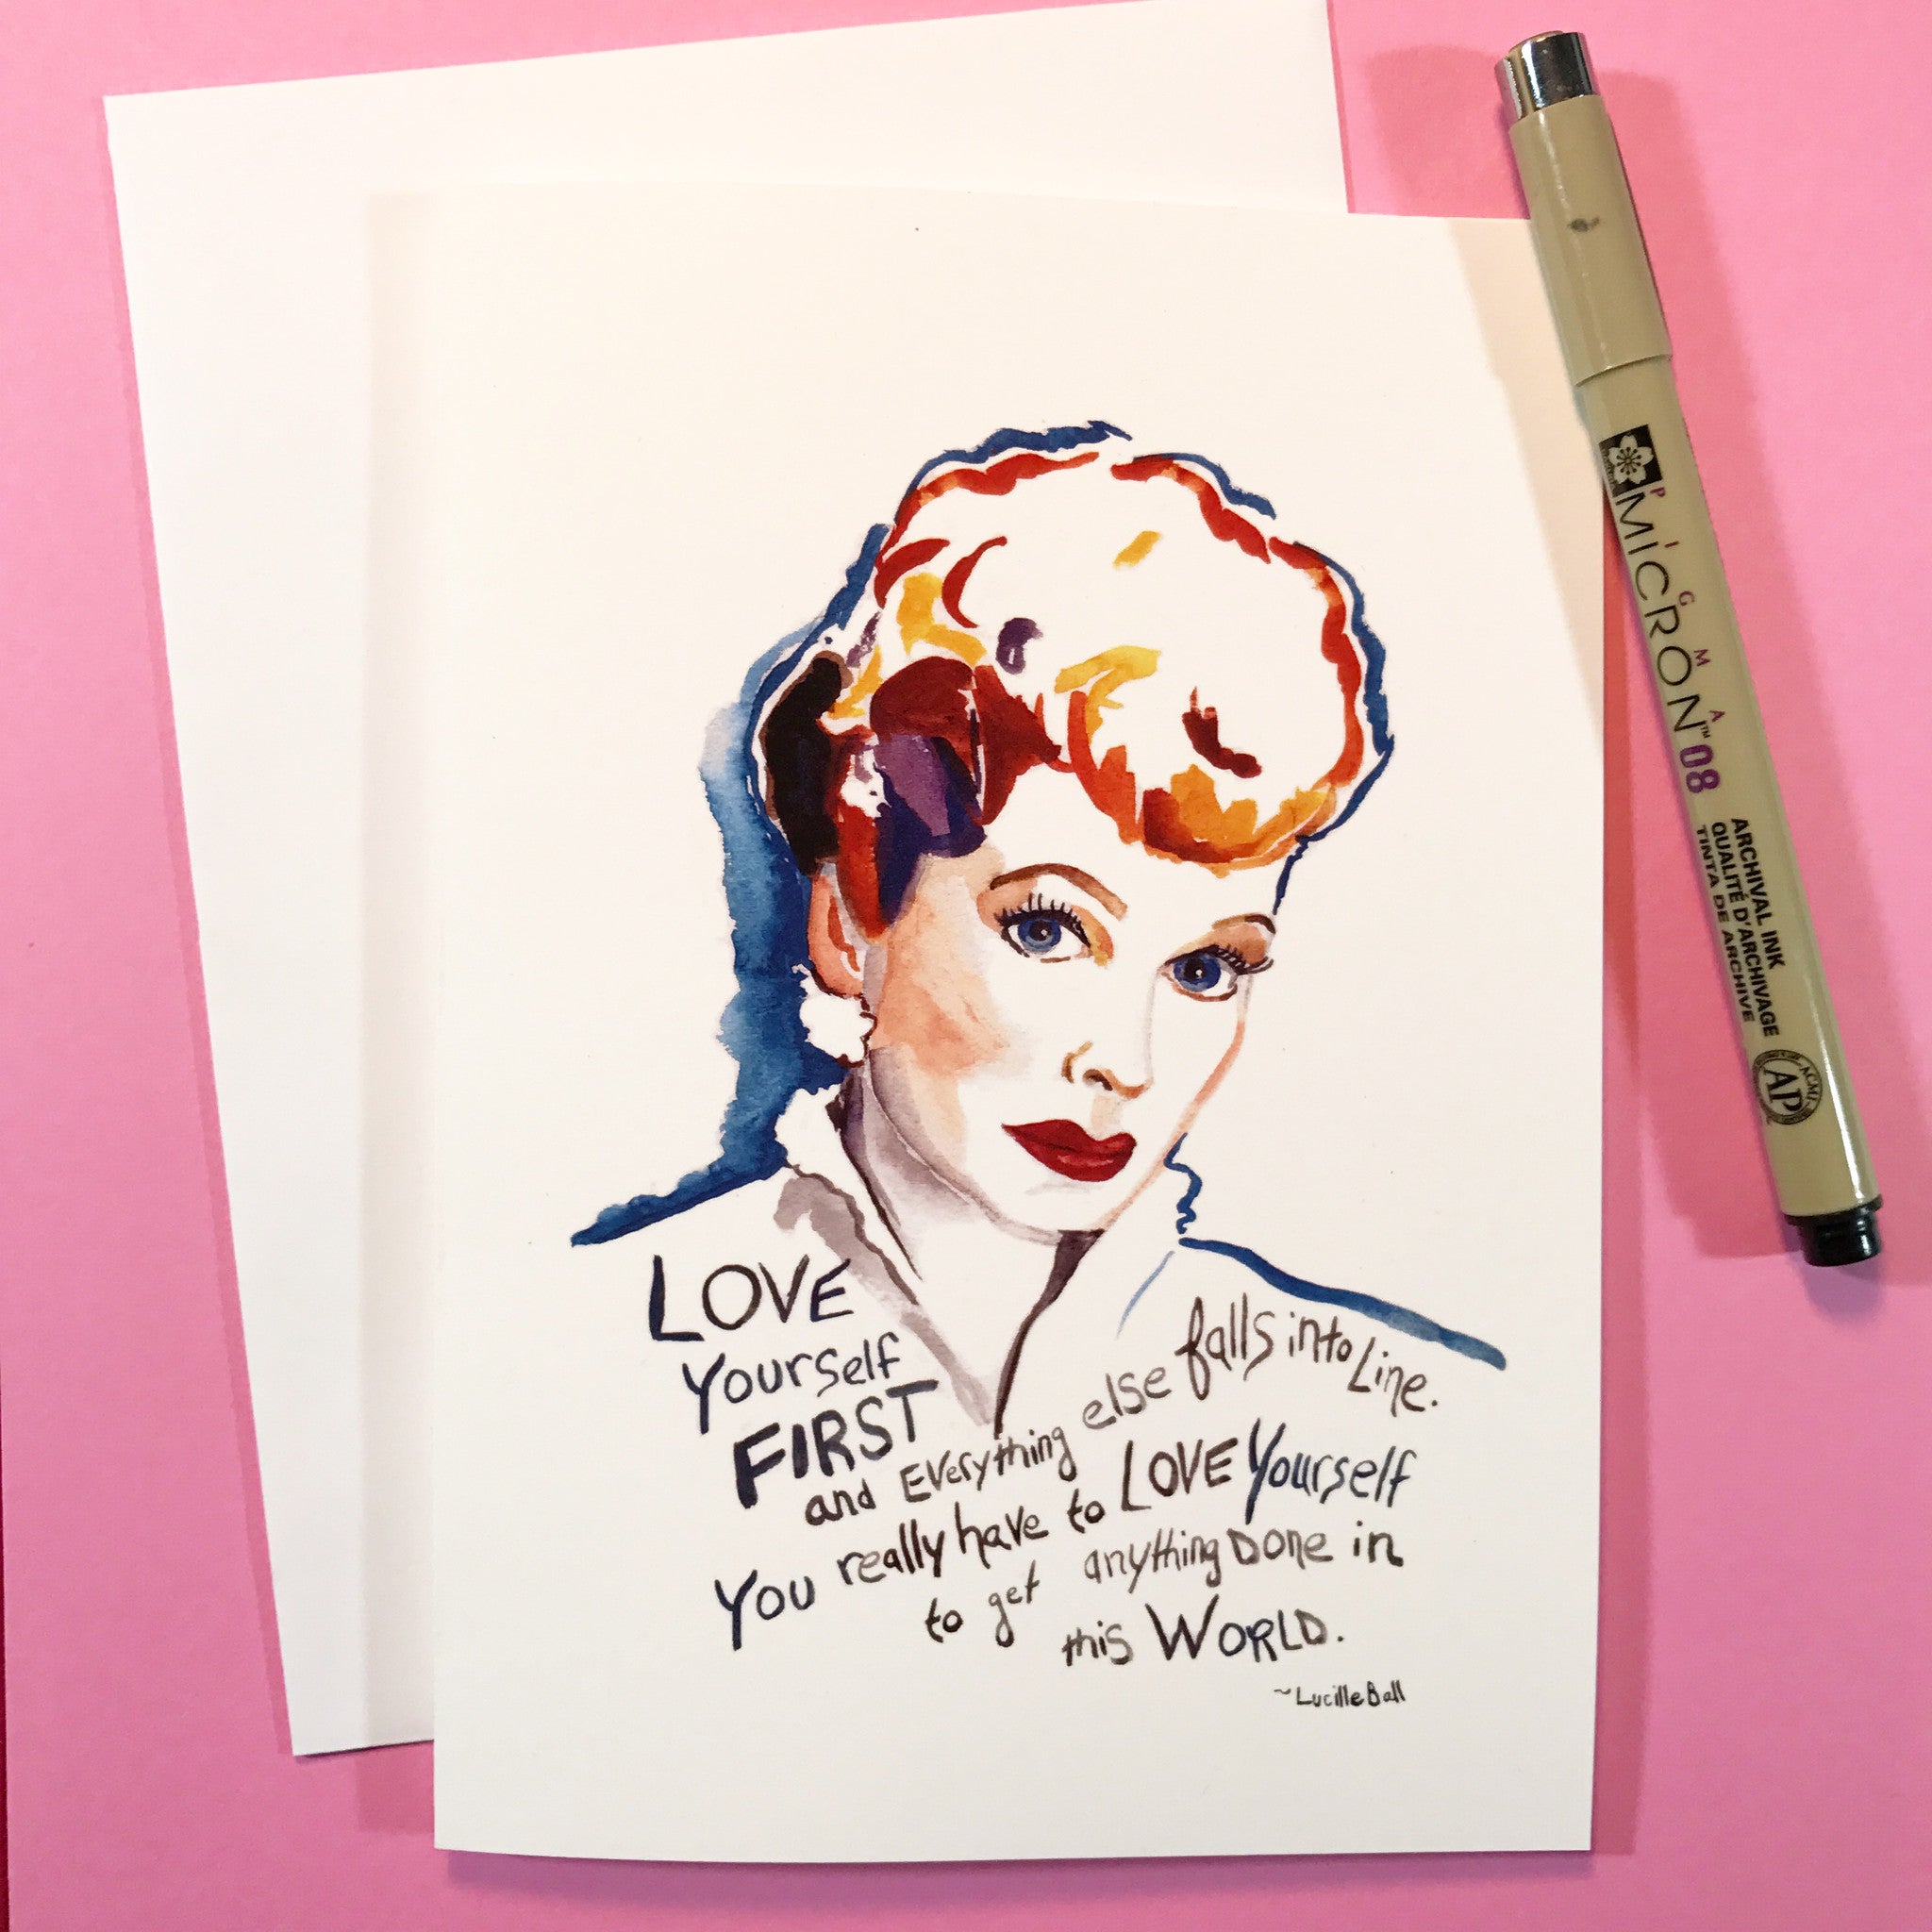 LOVE
Yourself
FIRST
and EVerything else falls into Line.
You really have to LOVE Yourself
to get anything Done in
this WORLD.
~Lucille Ball
PIGMA
MICRON™ 08
ARCHIVAL INK
QUALITÉ D'ARCHIVAGE
TINTA DE ARCHIVE
AP